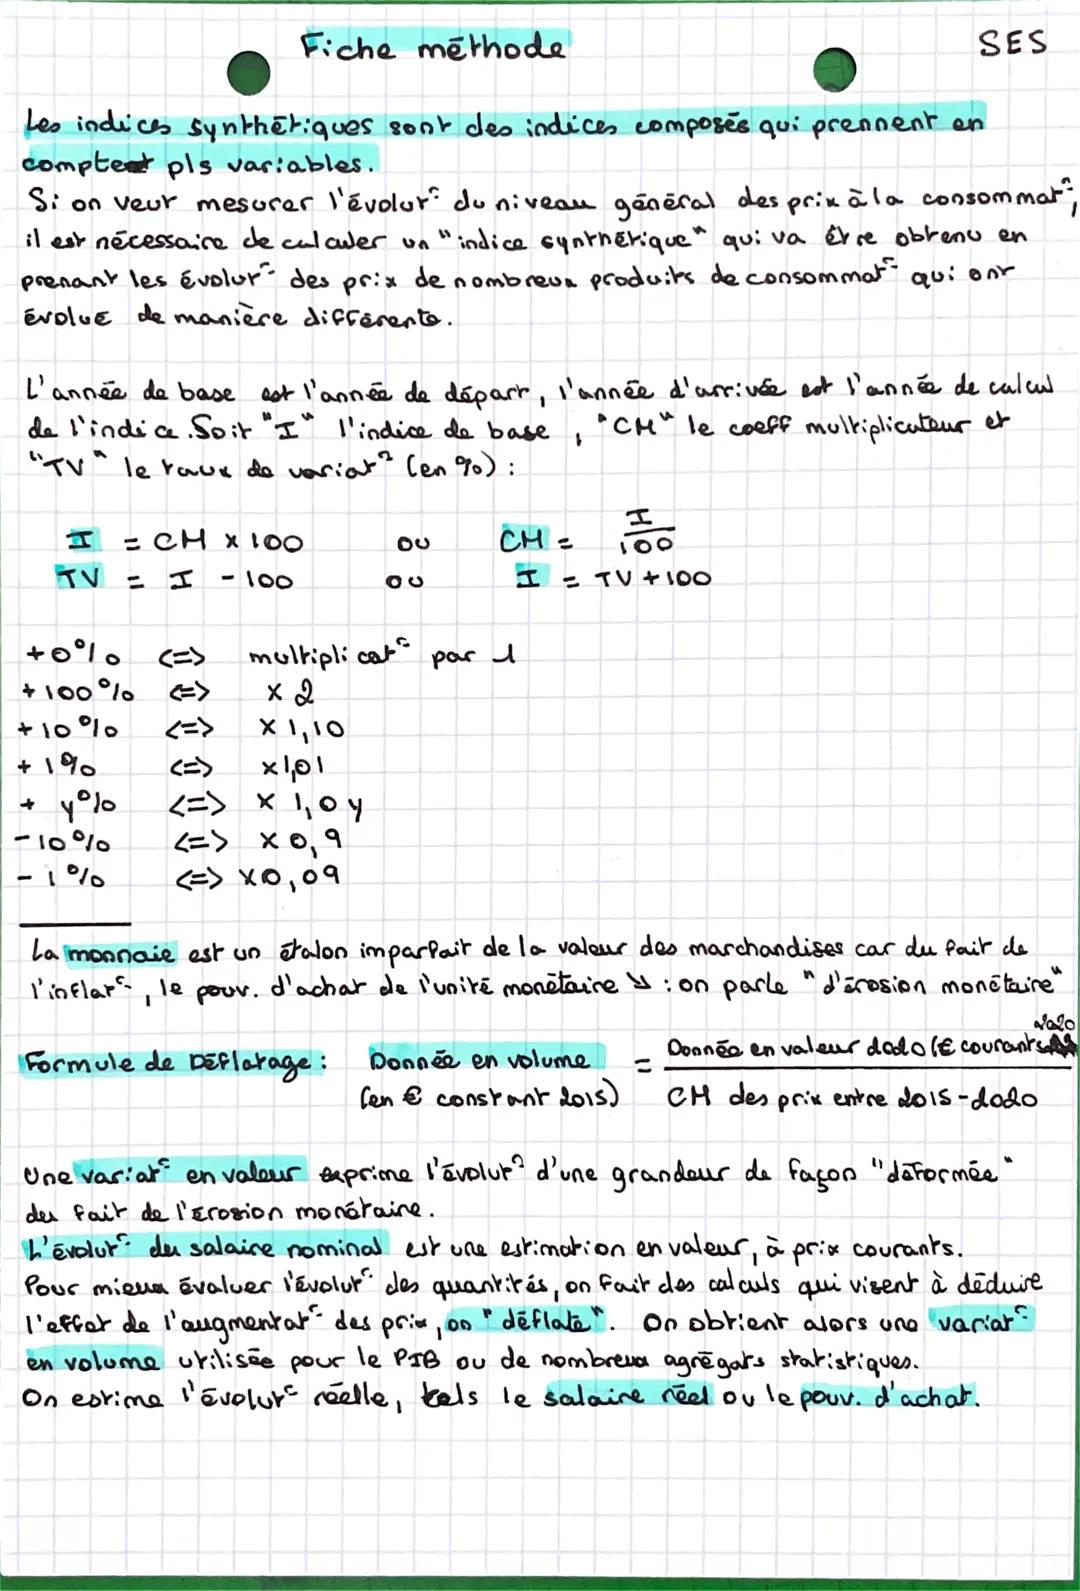 Fiche méthode
SES
Les indices synthétiques sont des indices composés qui prennent en
compte pls variables.
Si on veut mesurer l'évolut° du niveau général des prix à la consommat°,
il est nécessaire de calculer un "indice synthétique" qui va être obtenu en
prenant les évolut° des prix de nombreux produits de consommat° qui ont
évolué de manière différente.
L'année de base est l'année de départ, l'année d'arrivée est l'année de calcul
de l'indice. Soit "I" l'indice de base, "CM" le coeff multiplicateur et
"TV" le taux de variat° (en %) :
I = CM x 100 ou CM = I/100
TV = I - 100 ou I = TV + 100
+0% <=> multiplicat° par 1
+100% <=> x 2
+10% <=> x 1,10
+1% <=> x1,01
+ y% <=> x 1,0y
-10% <=> x 0,9
-1% <=> x0,09
La monnaie est un étalon imparfait de la valeur des marchandises car du fait de
l'inflat°, le pouv. d'achat de l'unité monétaire ↘ : on parle "d'érosion monétaire"
Formule de Déflatage : Donnée en volume (en € constant 2015) = Donnée en valeur 2020 (€ courants 2020 / CM des prix entre 2015-2020
Une variat° en valeur exprime l'évolut° d'une grandeur de façon "déformée"
du fait de l'érosion monétaire.
L'évolut° du salaire nominal est une estimation en valeur, à prix courants.
Pour mieux évaluer l'évolut° des quantités, on fait des calculs qui visent à déduire
l'effet de l'augmentat° des prix, on "déflate". On obtient alors une variat°
en volume utilisée pour le PIB ou de nombreux agrégats statistiques.
On estime l'évolut° réelle, tels le salaire réel ou le pouv. d'achat.